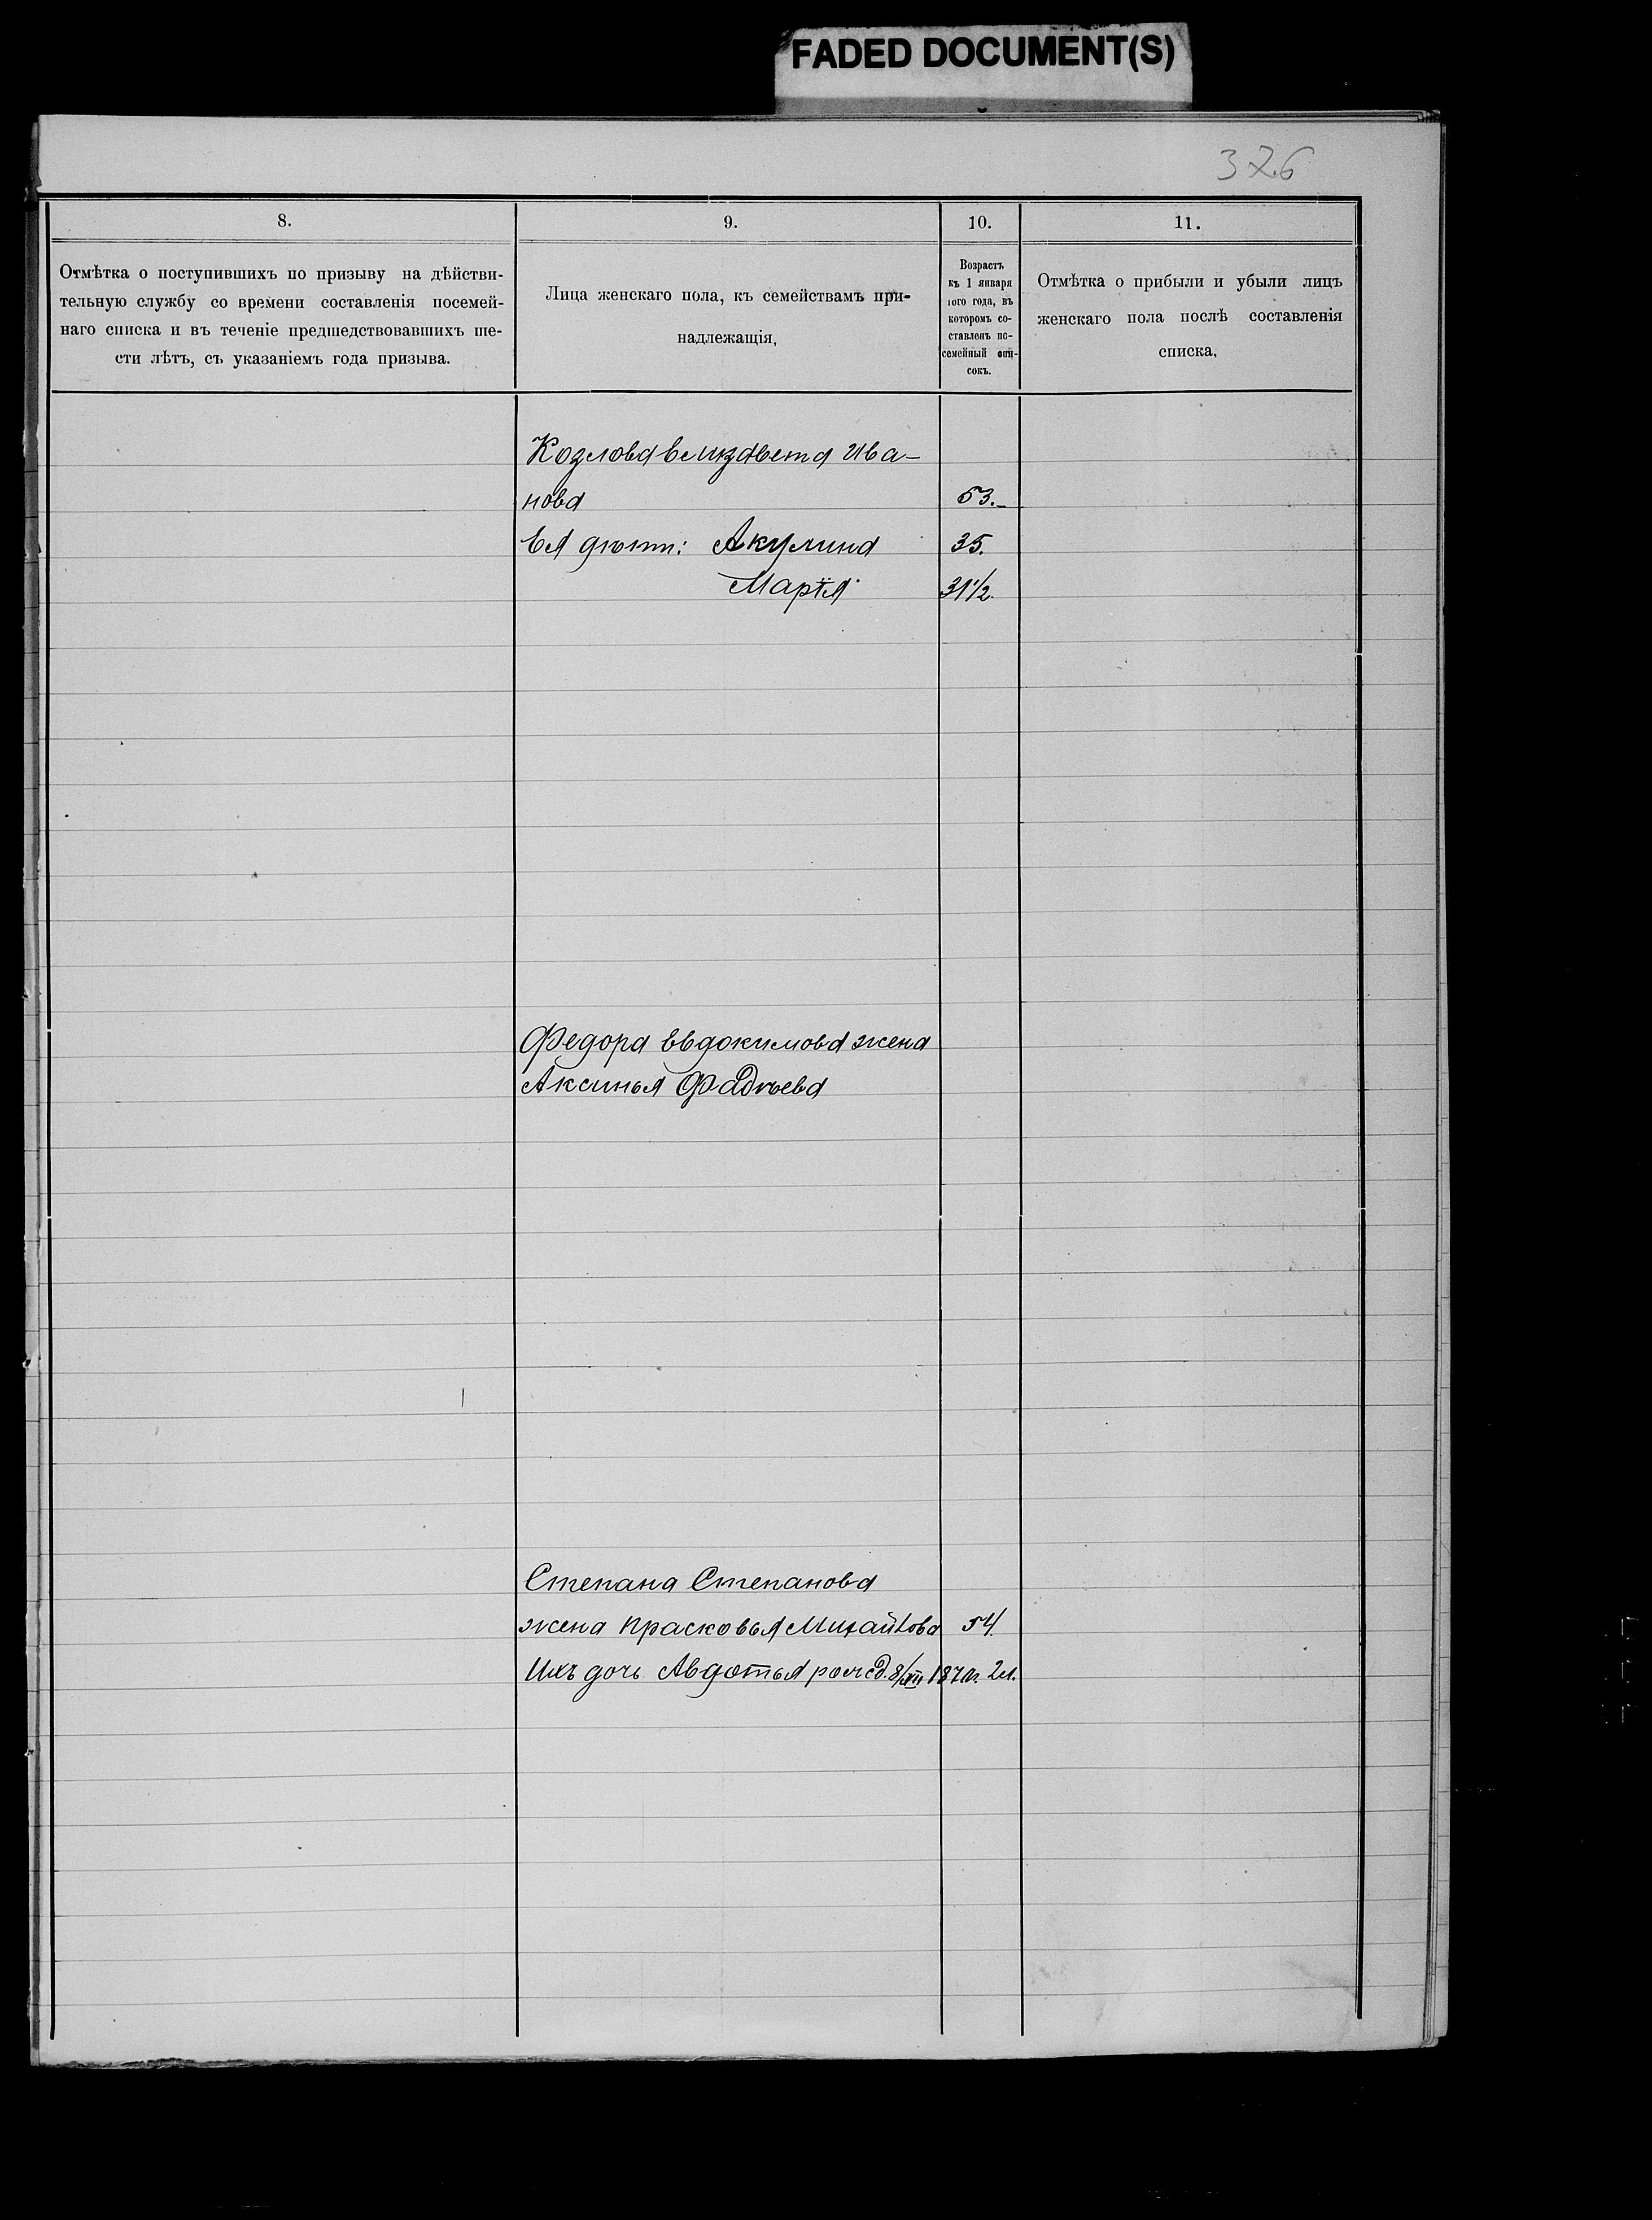 FADED DOCUMENT(S)
326
8.
Отмѣтка о поступившихъ по призыву на дѣйстви-
тельную службу со времени составленія посемей-
наго списка и въ теченіе предшедствовавшихъ ше-
сти лѣтъ, съ указаніемъ года призыва.
9.
Лица женскаго пола, къ семействамъ при-
надлежащія,
10.
Возрастъ
къ 1 января
того года, въ
которомъ со-
ставленъ по-
семейный спи-
сокъ.
11.
Отмѣтка о прибыли и убыли лицъ
женскаго пола послѣ составленія
списка,
Козлова Елизавета Ива-
нова 53.
Ея дѣти: Акулина 35.
Марія 31 1/2.
Федора Евдокимова жена
Аксинья Фадѣева
Степана Степанова
жена Прасковья Михайлова 54.
Ихъ дочь Авдотья рожд. 8/XII 187 г. 2 л.